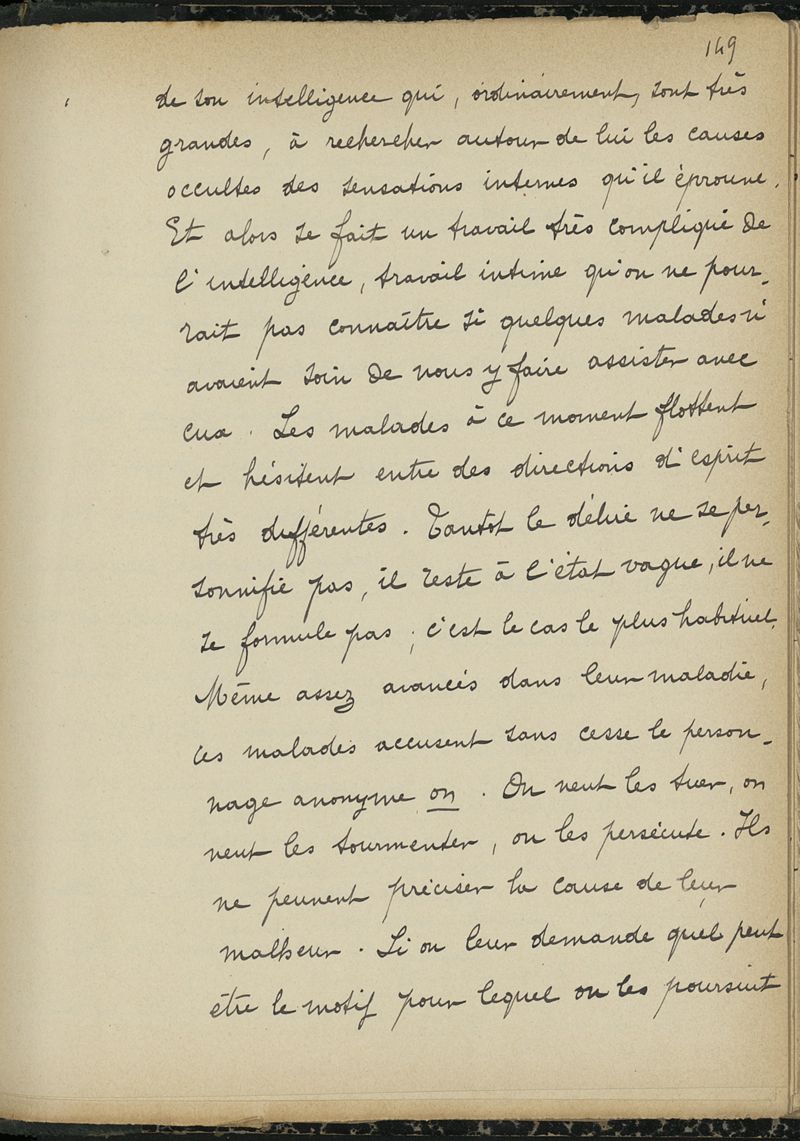 149
de son intelligence qui, ordinairement, sont très
grandes, à rechercher autour de lui les causes
occultes des sensations internes qu'il éprouve.
Et alors se fait un travail très compliqué de
l'intelligence, travail intime qu'on ne pour-
rait pas connaître si quelques malades n'
avaient soin de nous y faire assister avec
eux. Les malades à ce moment flottent
et hésitent entre des directions d'esprit
très différentes. Tantôt le délire ne se per-
sonnifie pas, il reste à l'état vague, il ne
se formule pas; c'est le cas le plus habituel.
Même assez avancés dans leur maladie,
ces malades accusent sans cesse le person-
nage anonyme on. On veut les tuer, on
veut les tourmenter, on les persécute. Ils
ne peuvent préciser la cause de leur
malheur. Si on leur demande quel peut
être le motif pour lequel on les poursuit